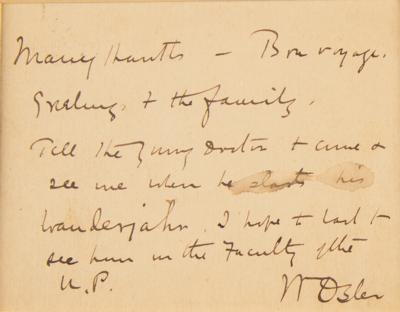 Many thanks – Bon voyage.
Greetings to the family.
Tell the young Doctor to come &
see me when he starts his
wanderjahr. I hope to
see him in the Faculty of the
U.P.
W Osler